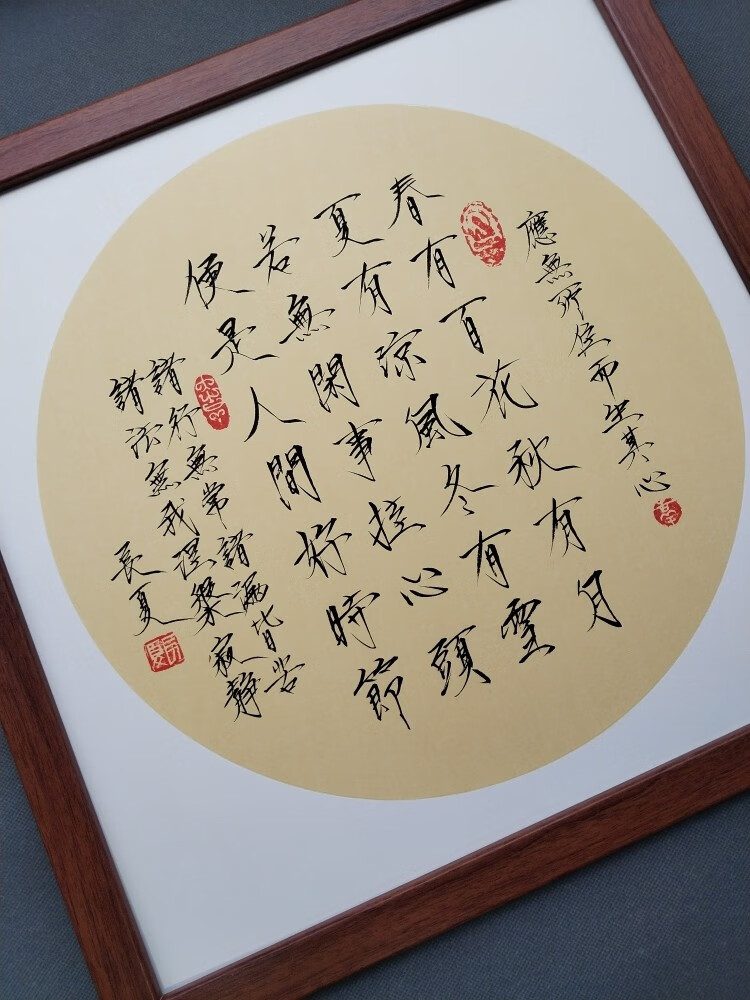 應無所住而生其心
春有百花秋有月
夏有凉風冬有雪
若無閑事挂心頭
便是人間好時節
諸行無常諸漏皆苦
諸法無我涅槃寂靜
長夏